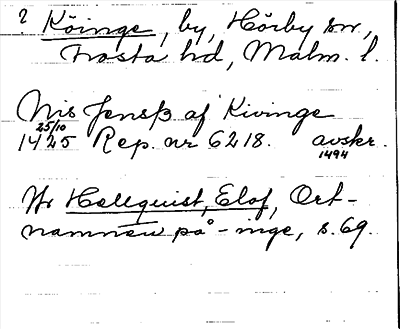 ? Köinge, by, Hörby sn,
Frosta hd, Malm. l.
Nis Jensß af Kivinge
25/10
1425 Rep. nr 6218. avskr.
1494
Hellquist, Elof, Ort-
namnen på -inge, s. 69.